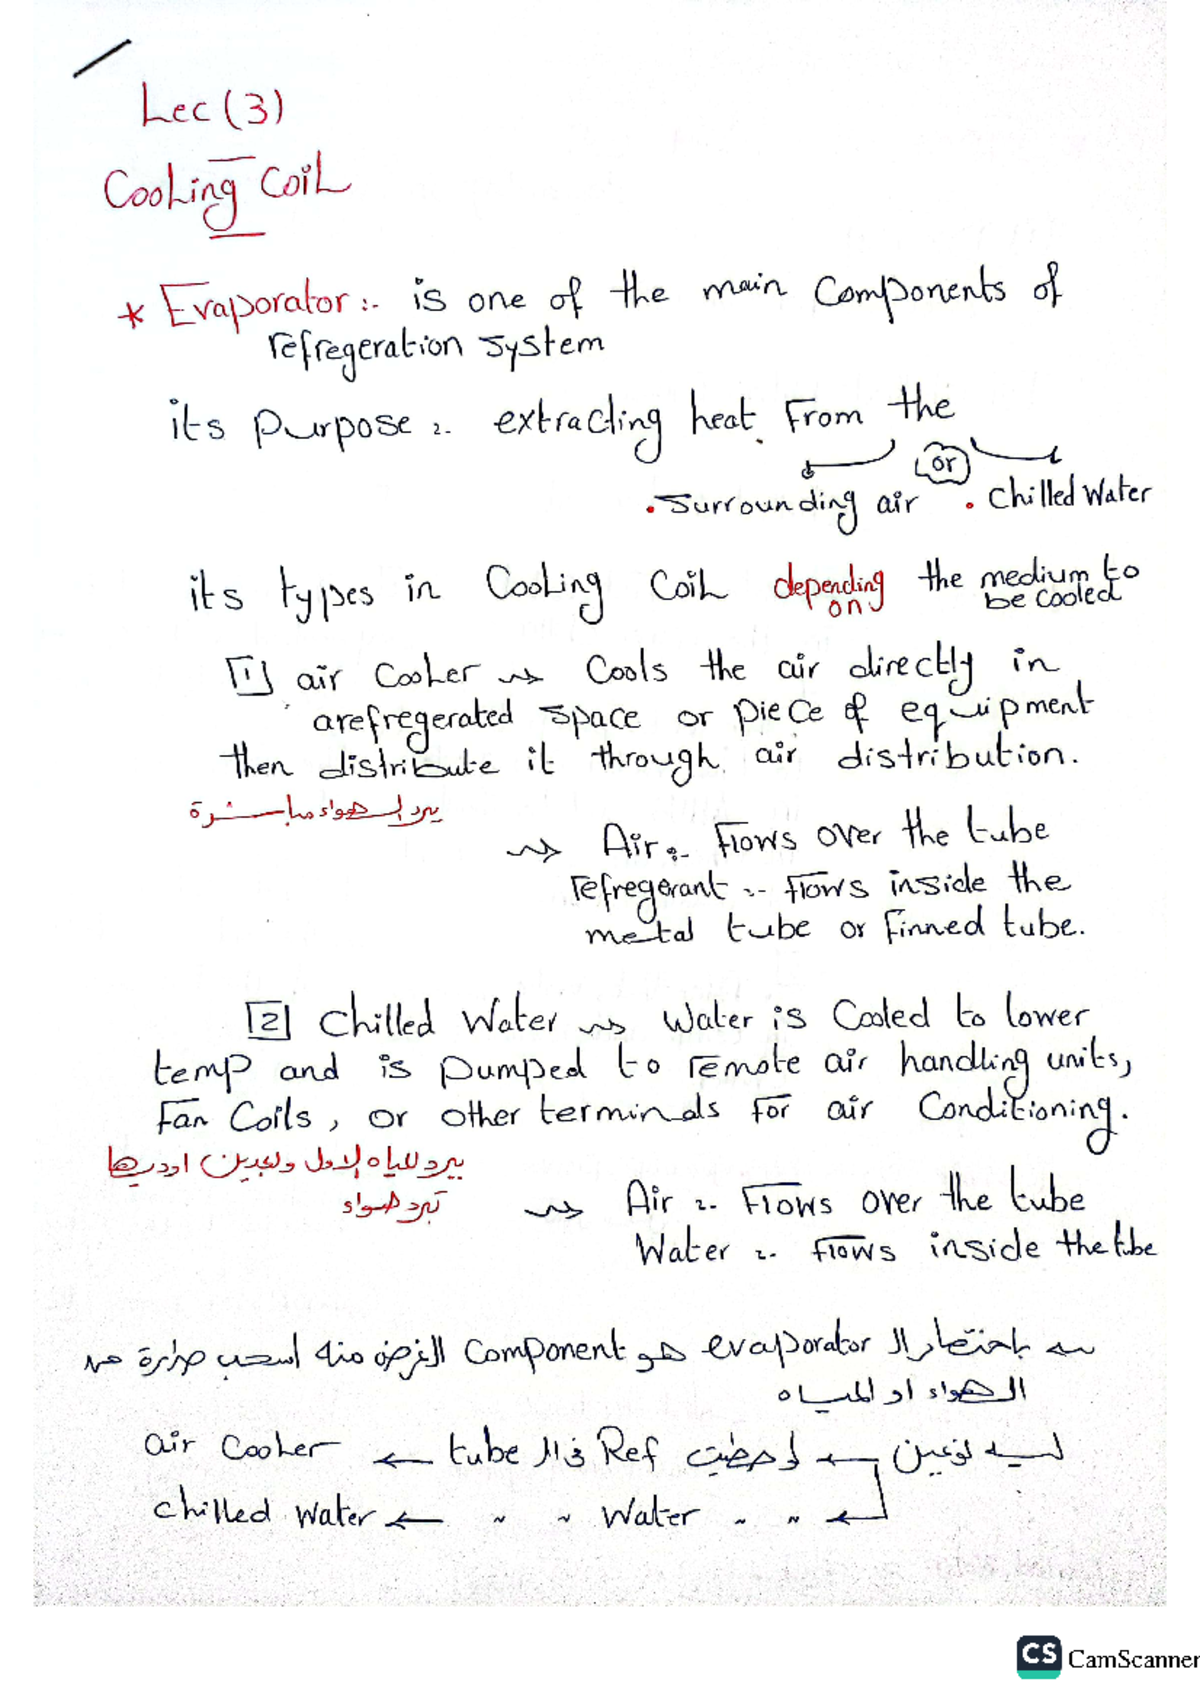 Lec (3)
Cooling Coil
* Evaporator :- is one of the main Components of
refregeration system
its purpose :- extracting heat From the
or
• Surrounding air • Chilled Water
its types in Cooling Coil depending on the medium to be cooled
1 air Cooler → Cools the air directly in
a refregerated space or piece of equipment
then distribute it through air distribution.
يبرد الهواء مباشرة
→ Air :- Flows over the tube
refregerant :- flows inside the
metal tube or Finned tube.
2 Chilled Water → Water is Cooled to lower
temp and is pumped to remote air handling units,
Fan Coils, or other terminals for air Conditioning.
يبرد المياه الاول وبعدين اوديها
تبرد هواء
→ Air :- Flows over the tube
Water :- flows inside the tube
باختصار ال evaporator هو Component الغرض منه اسحب حرارة من
الهواء او المياه
ليه نوعين ← لو حطيت Ref في ال tube ← air Cooler
← " " Water " " ← Chilled Water
CS CamScanner